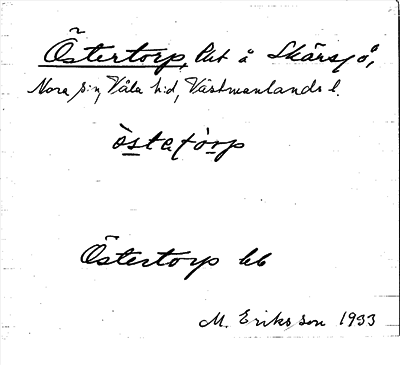 Östertorp, lht å Skärsjö,
Nora s:n, Våla h:d, Västmanlands l.
òstatórp
Östertorp kb
M. Eriksson 1933